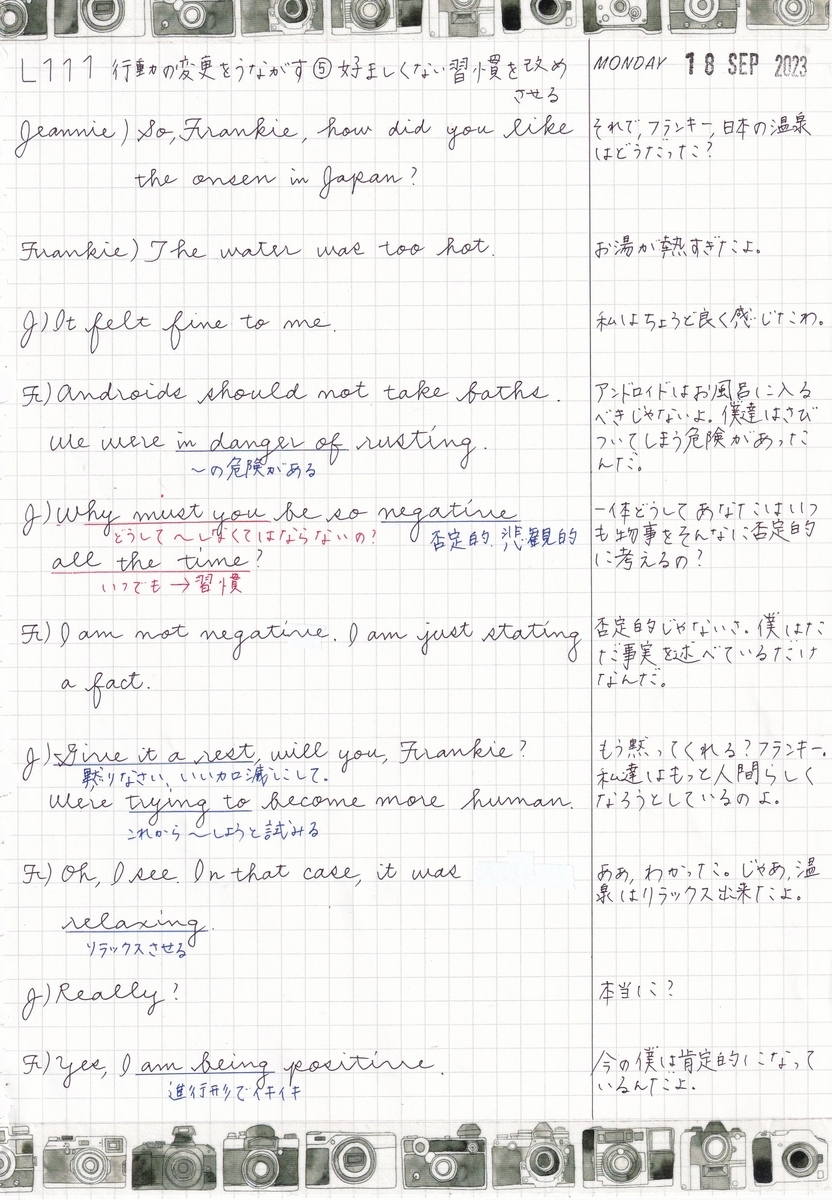 L111 行動の変更をうながす⑤好ましくない習慣を改め
させる
MONDAY 18 SEP 2023
Jeannie) So, Frankie, how did you like
the onsen in Japan?
それで, フランキー, 日本の温泉
はどうだった?
Frankie) The water was too hot.
お湯が熱すぎたよ。
J) It felt fine to me.
私はちょうど良く感じたわ。
Fr) Androids should not take baths.
We were in danger of rusting.
〜の危険がある
アンドロイドはお風呂に入る
べきじゃないよ。僕達はさび
ついてしまう危険があった
んだ。
J) Why must you be so negative
どうして〜しなくてはならないの?
否定的, 悲観的
all the time?
いつでも→習慣
一体どうしてあなたはいつ
も物事をそんなに否定的
に考えるの?
Fr) I am not negative. I am just stating
a fact.
否定的じゃないさ。僕はた
だ事実を述べているだけ
なんだ。
J) Give it a rest, will you, Frankie?
黙りなさい, いい加減にして.
We're trying to become more human.
これから〜しようと試みる
もう黙ってくれる?フランキー.
私達はもっと人間らしく
なろうとしているのよ。
Fr) Oh, I see. In that case, it was
relaxing.
リラックスさせる
ああ, わかった。じゃあ, 温
泉はリラックス出来たよ。
J) Really?
本当に?
Fr) Yes, I am being positive.
進行形でイキイキ
今の僕は肯定的になって
いるんだよ.